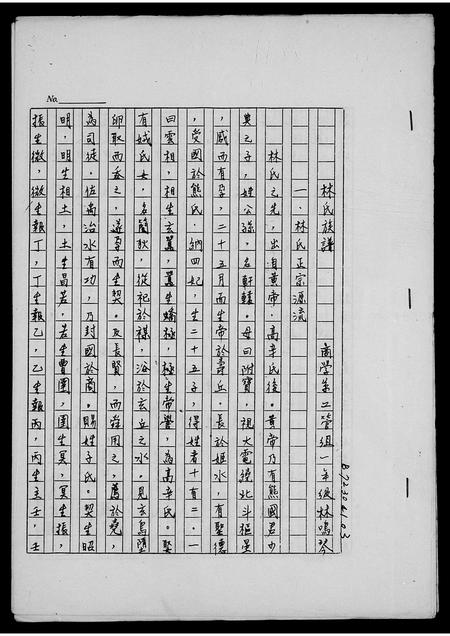 No.
林氏族譜 商學第二營組一年級林鳴琴
B72304103
一、林氏正宗源流
林氏之先，出自黃帝高辛氏後。黃帝乃有熊國君少
典之子，姓公孫，名軒轅。母曰附寶，視大電繞北斗樞星
，感而有孕，二十五月而生帝於壽丘，長於姬水，有聖德
，受國於熊氏，納四妃，生二十五子，得姓者十有二，一
曰雲相，相生玄囂，囂生蟜極，極生帝嚳，為高辛氏。娶
有娀氏女，名簡狄，從祀於禖，浴於玄丘之水，見玄鳥墮
卵取而吞之，遂孕而生契。及長賢，而舜用之，薦於堯，
為司徒，佐禹治水有功，乃封國於商。賜姓子氏。契生昭
明，明生相土，土生昌若，若生曹圉，圉生冥，冥生振，
振生微，微生報丁，丁生報乙，乙生報丙，丙生主壬，壬